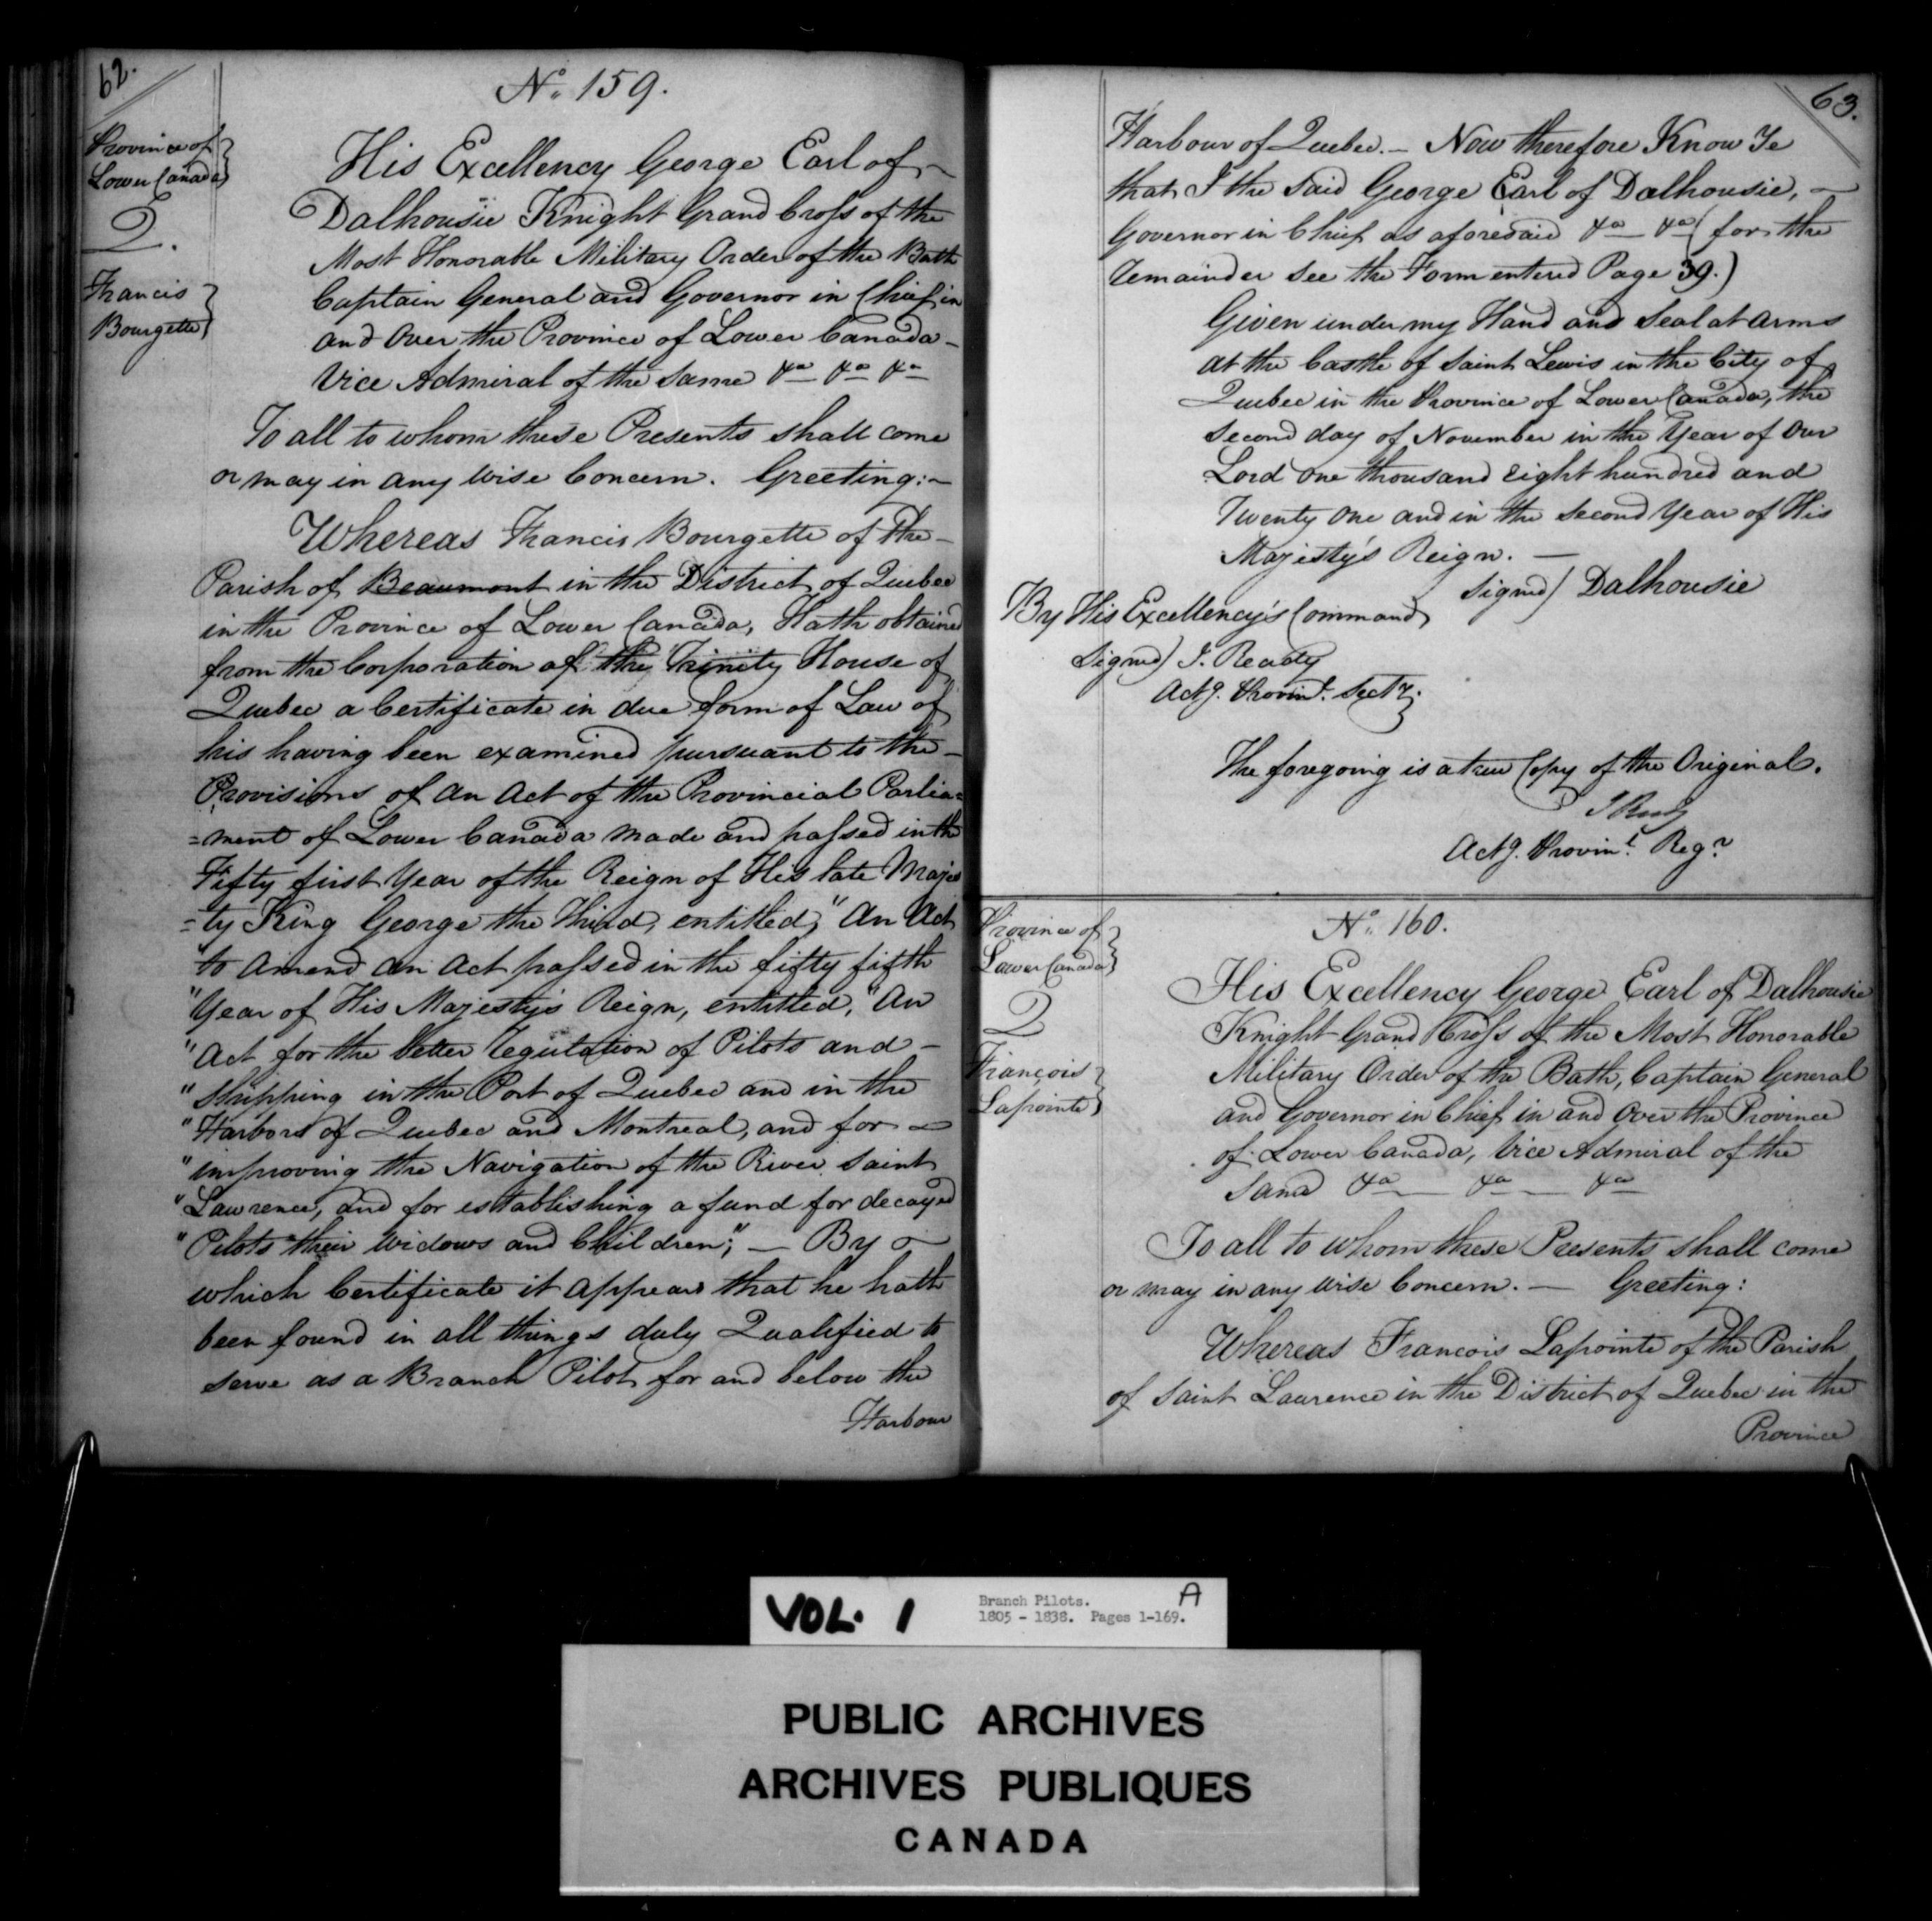 62.
No. 159.
Province of
Lower Canada
Q.
Francis
Bourgette
His Excellency George Earl of
Dalhousie Knight Grand Cross of the
Most Honorable Military Order of the Bath
Captain General and Governor in Chief in
and Over the Province of Lower Canada
Vice Admiral of the Same &a &a &a
To all to whom these Presents shall come
or may in any wise Concern. Greeting:
Whereas Francis Bourgette of the
Parish of Beaumont in the District of Quebec
in the Province of Lower Canada, Hath obtained
from the Corporation of the Trinity House of
Quebec a Certificate in due form of Law of
his having been examined pursuant to the
Provisions of an Act of the Provincial Parlia=
=ment of Lower Canada made and passed in the
Fifty first Year of the Reign of His late Majes
=ty King George the Third, entitled, "An Act
to Amend an Act passed in the fifty fifth
"Year of His Majesty's Reign, entitled, "An
"Act for the better regulation of Pilots and
"Shipping in the Port of Quebec and in the
"Harbors of Quebec and Montreal, and for
"improving the Navigation of the River Saint
"Lawrence, and for establishing a fund for decayed
"Pilots their Widows and Children;" — By
which Certificate it appears that he hath
been found in all things duly Qualified to
serve as a Branch Pilot for and below the
Harbour
63.
Harbour of Quebec. — Now therefore Know Ye
that I the Said George Earl of Dalhousie,
Governor in Chief as aforesaid &a &a (for the
remainder see the Form entered Page 39.)
Given under my Hand and Seal at Arms
at the Castle of Saint Lewis in the City of
Quebec in the Province of Lower Canada, the
Second day of November in the Year of Our
Lord One thousand Eight hundred and
Twenty One and in the Second Year of His
Majesty's Reign. —
Signed) Dalhousie
By His Excellency's Command
Signed) J. Ready
Actg. Provinl. Secty.
The foregoing is a true Copy of the Original.
J Ready
Actg. Provinl. Regr
No. 160.
Province of
Lower Canada
Q
François
Lapointe
His Excellency George Earl of Dalhousie
Knight Grand Cross of the Most Honorable
Military Order of the Bath, Captain General
and Governor in Chief in and Over the Province
of Lower Canada, Vice Admiral of the
Same &a &a &a
To all to whom these Presents shall come
or may in any wise Concern. — Greeting:
Whereas Francois Lapointe of the Parish
of Saint Laurence in the District of Quebec in the
Province
VOL. 1
Branch Pilots.
1805 - 1838. Pages 1-169.
A
PUBLIC ARCHIVES
ARCHIVES PUBLIQUES
CANADA